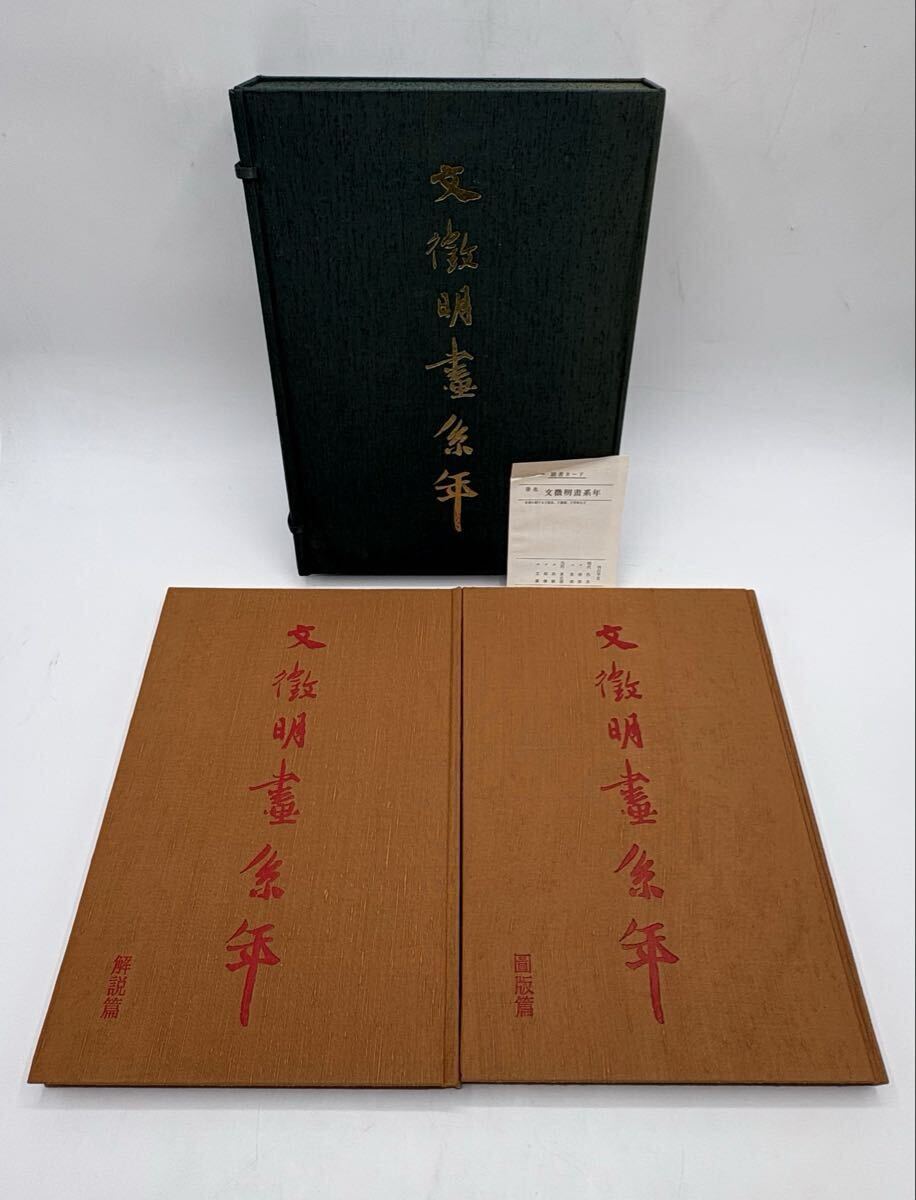 文徵明畫系年
讀者カード
書名 文徵明畫系年
文徵明畫系年
解説篇
文徵明畫系年
圖版篇